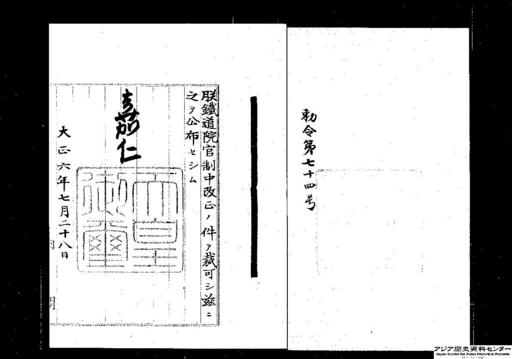 勅令第七十四号
朕鐵道院官制中改正ノ件ヲ裁可シ茲ニ
之ヲ公布セシム
嘉仁
天皇御璽
大正六年七月二十八日
アジア歴史資料センター
Japan Center for Asian Historical Records